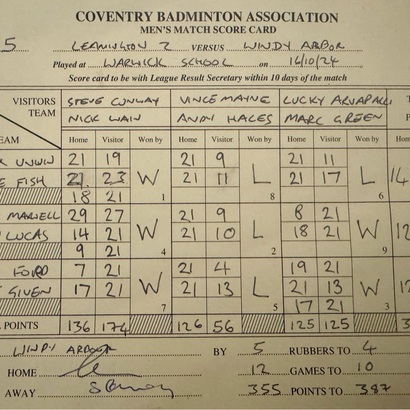 COVENTRY BADMINTON ASSOCIATION
MEN'S MATCH SCORE CARD
5 LEAMINGTON 2 VERSUS WINDY ARBOR
Played at WARWICK SCHOOL on 16/10/24
Score card to be with League Result Secretary within 10 days of the match
VISITORS TEAM STEVE CONWAY VINCE MAYNE LUCKY
NICK WAIN ANDY HALES MARC GREEN
EAM Home Visitor Won by Home Visitor Won by Home Visitor Won by
UNWIN 21 19 21 9 21 11
FISH 21 23 W 21 11 L 21 17 L 14
18 21 1 8 6
MAXWELL 29 27 21 9 8 21
LUCAS 14 21 W 21 10 L 18 21 W 12
9 21 4 2 9
FORD 7 21 21 4 19 21
GIVEN 17 21 W 21 13 L 21 13 W 12
7 5 17 21 3
POINTS 136 174 126 56 125 125
WINDY ARBOR BY 5 RUBBERS TO 4
HOME 12 GAMES TO 10
AWAY 355 POINTS TO 387